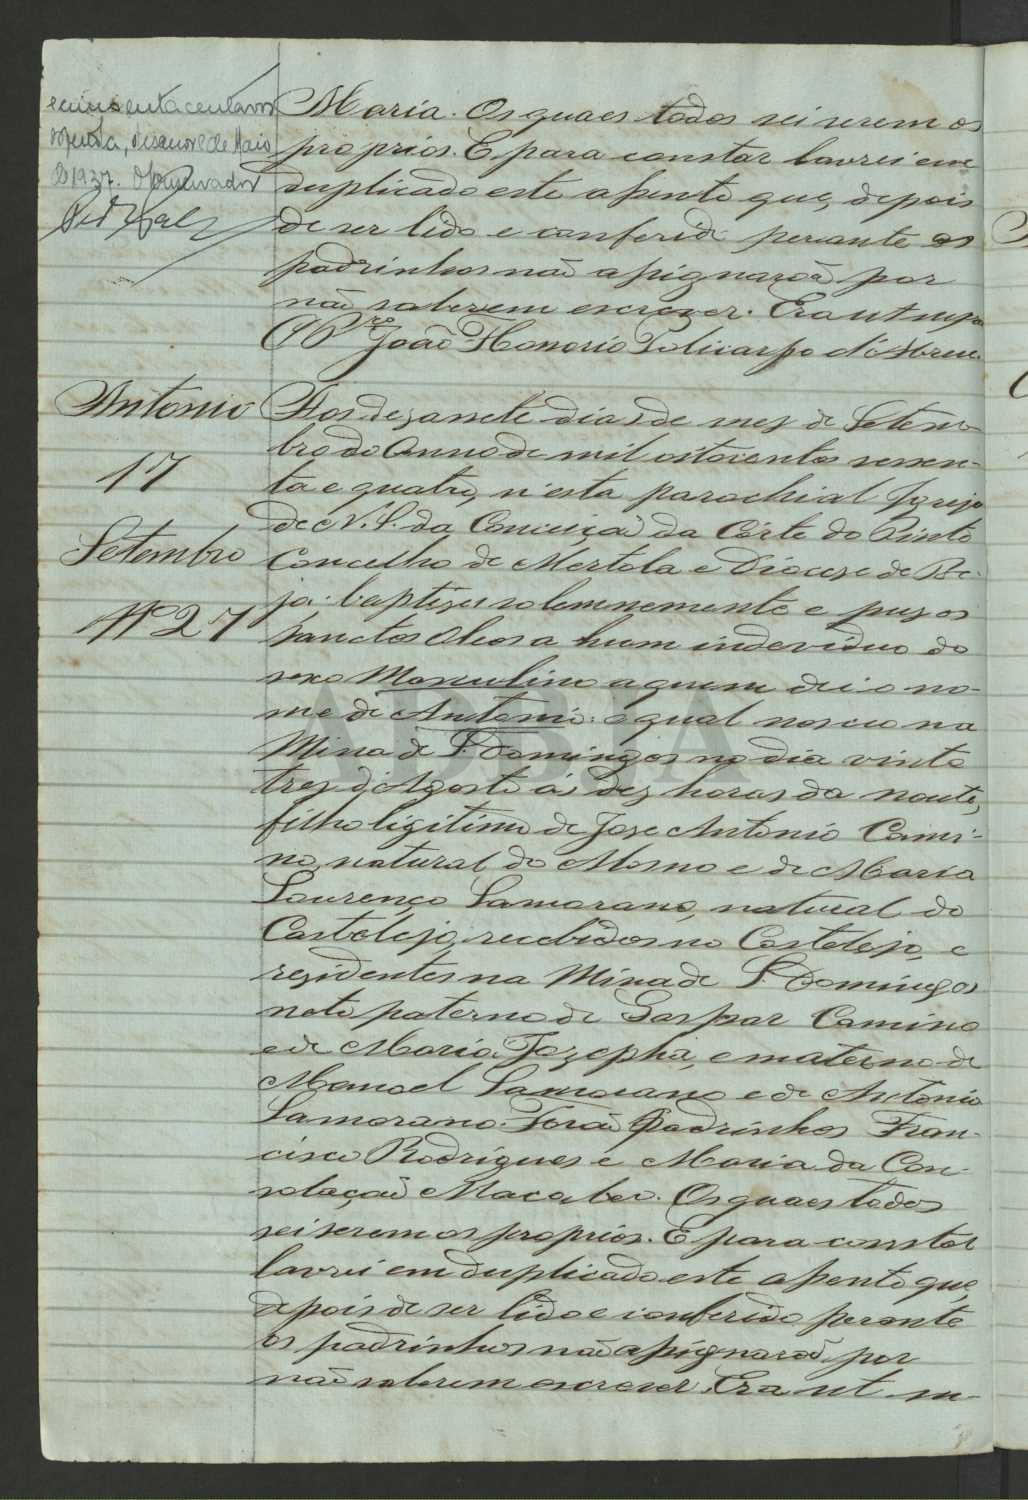 e cincoenta centavos
Mertola, dezenove de Maio
de 1937. O Conservador
Maria. Os quaes todos sei serem os
proprios. E para constar lavrei em
duplicado este assento que, depois
de ser lido e conferido perante os
padrinhos não assignarão por
não saberem escrever. Era ut supra
O Pr.e João Honorio Policarpo d'Abreu
Antonio
17
Setembro
Nº 27
Aos dezassete dias de mez de Setem-
bro do Anno de mil oitocentos sessen-
ta e quatro, n'esta parochial Igreja
de N. S. da Conceiçaõ da Côrte do Pinto
Concelho de Mertola e Diocese de Be-
ja: baptizei solemnemente e puz os
Sanctos Oleos a hum individuo do
sexo Masculino a quem dei o no-
me de Antonio: o qual nasceo na
Mina de S. Domingos no dia vinte
tres d'Agosto ás dez horas da noute,
filho ligitimo de Jose Antonio Cami-
no, natural do Mosmo e de Maria
Lourenço Samorano, natural do
Castelejo, recebidos no Castelejo, e
residentes na Mina de S. Domingos
neto paterno de Gaspar Camino
e de Maria Jozepha, e materno de
Manoel Samorano e de Antonia
Samorano. Foraõ Padrinhos Fran-
cisco Rodrigues e Maria da Con-
solaçaõ Os quaes todos
sei serem os proprios. E para constar
lavrei em duplicado este assento que,
depois de ser lido e conferido perante
os padrinhos naõ assignaraõ por
não saberem escrever. Era ut su-
ADBJA